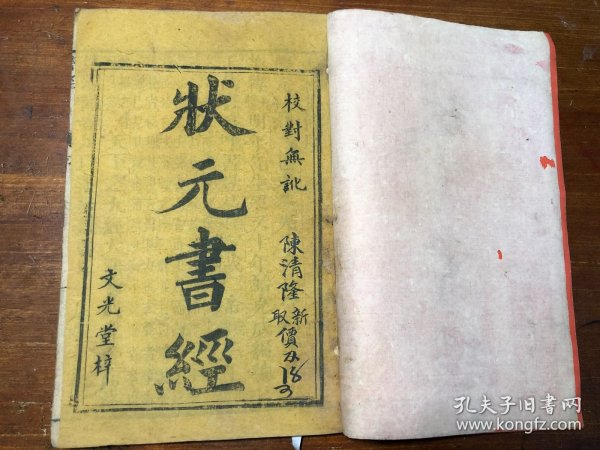 校對無訛
陳清隆新
取價
狀元書經
文光堂梓
孔夫子旧书网
www.kongfz.com